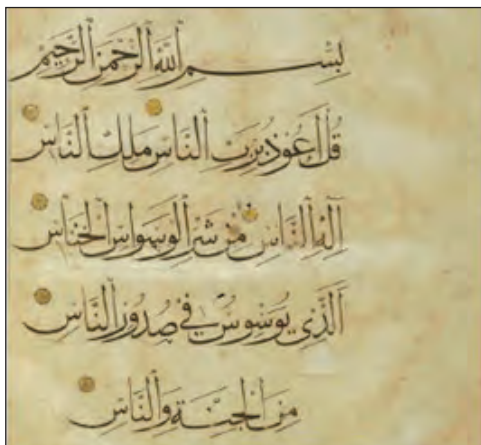 بِسْمِ ٱللَّهِ ٱلرَّحْمَٰنِ ٱلرَّحِيمِ
قُلْ أَعُوذُ بِرَبِّ ٱلنَّاسِ مَلِكِ ٱلنَّاسِ
إِلَٰهِ ٱلنَّاسِ مِن شَرِّ ٱلْوَسْوَاسِ ٱلْخَنَّاسِ
ٱلَّذِي يُوَسْوِسُ فِي صُدُورِ ٱلنَّاسِ
مِنَ ٱلْجِنَّةِ وَٱلنَّاسِ